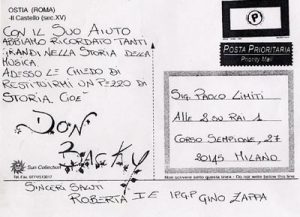 OSTIA (ROMA)
-Il Castello (sec.XV)
CON IL SUO AIUTO
ABBIAMO RICORDATO TANTI
GRANDI NELLA STORIA DELLA
MUSICA.
ADESSO LE CHIEDO DI
RESTITUIRMI UN PEZZO DI
STORIA CIOÈ
DON
BACKY
SINCERI SALUTI
ROBERTA I E IPGP GINO ZAPPA
Sun Collection
P
POSTA PRIORITARIA
Priority Mail
SIG. PAOLO LIMITI
ALLE 2 SU RAI 1
CORSO SEMPIONE, 27
20145 MILANO
Non scrivere sotto questa linea - Do not write below this line